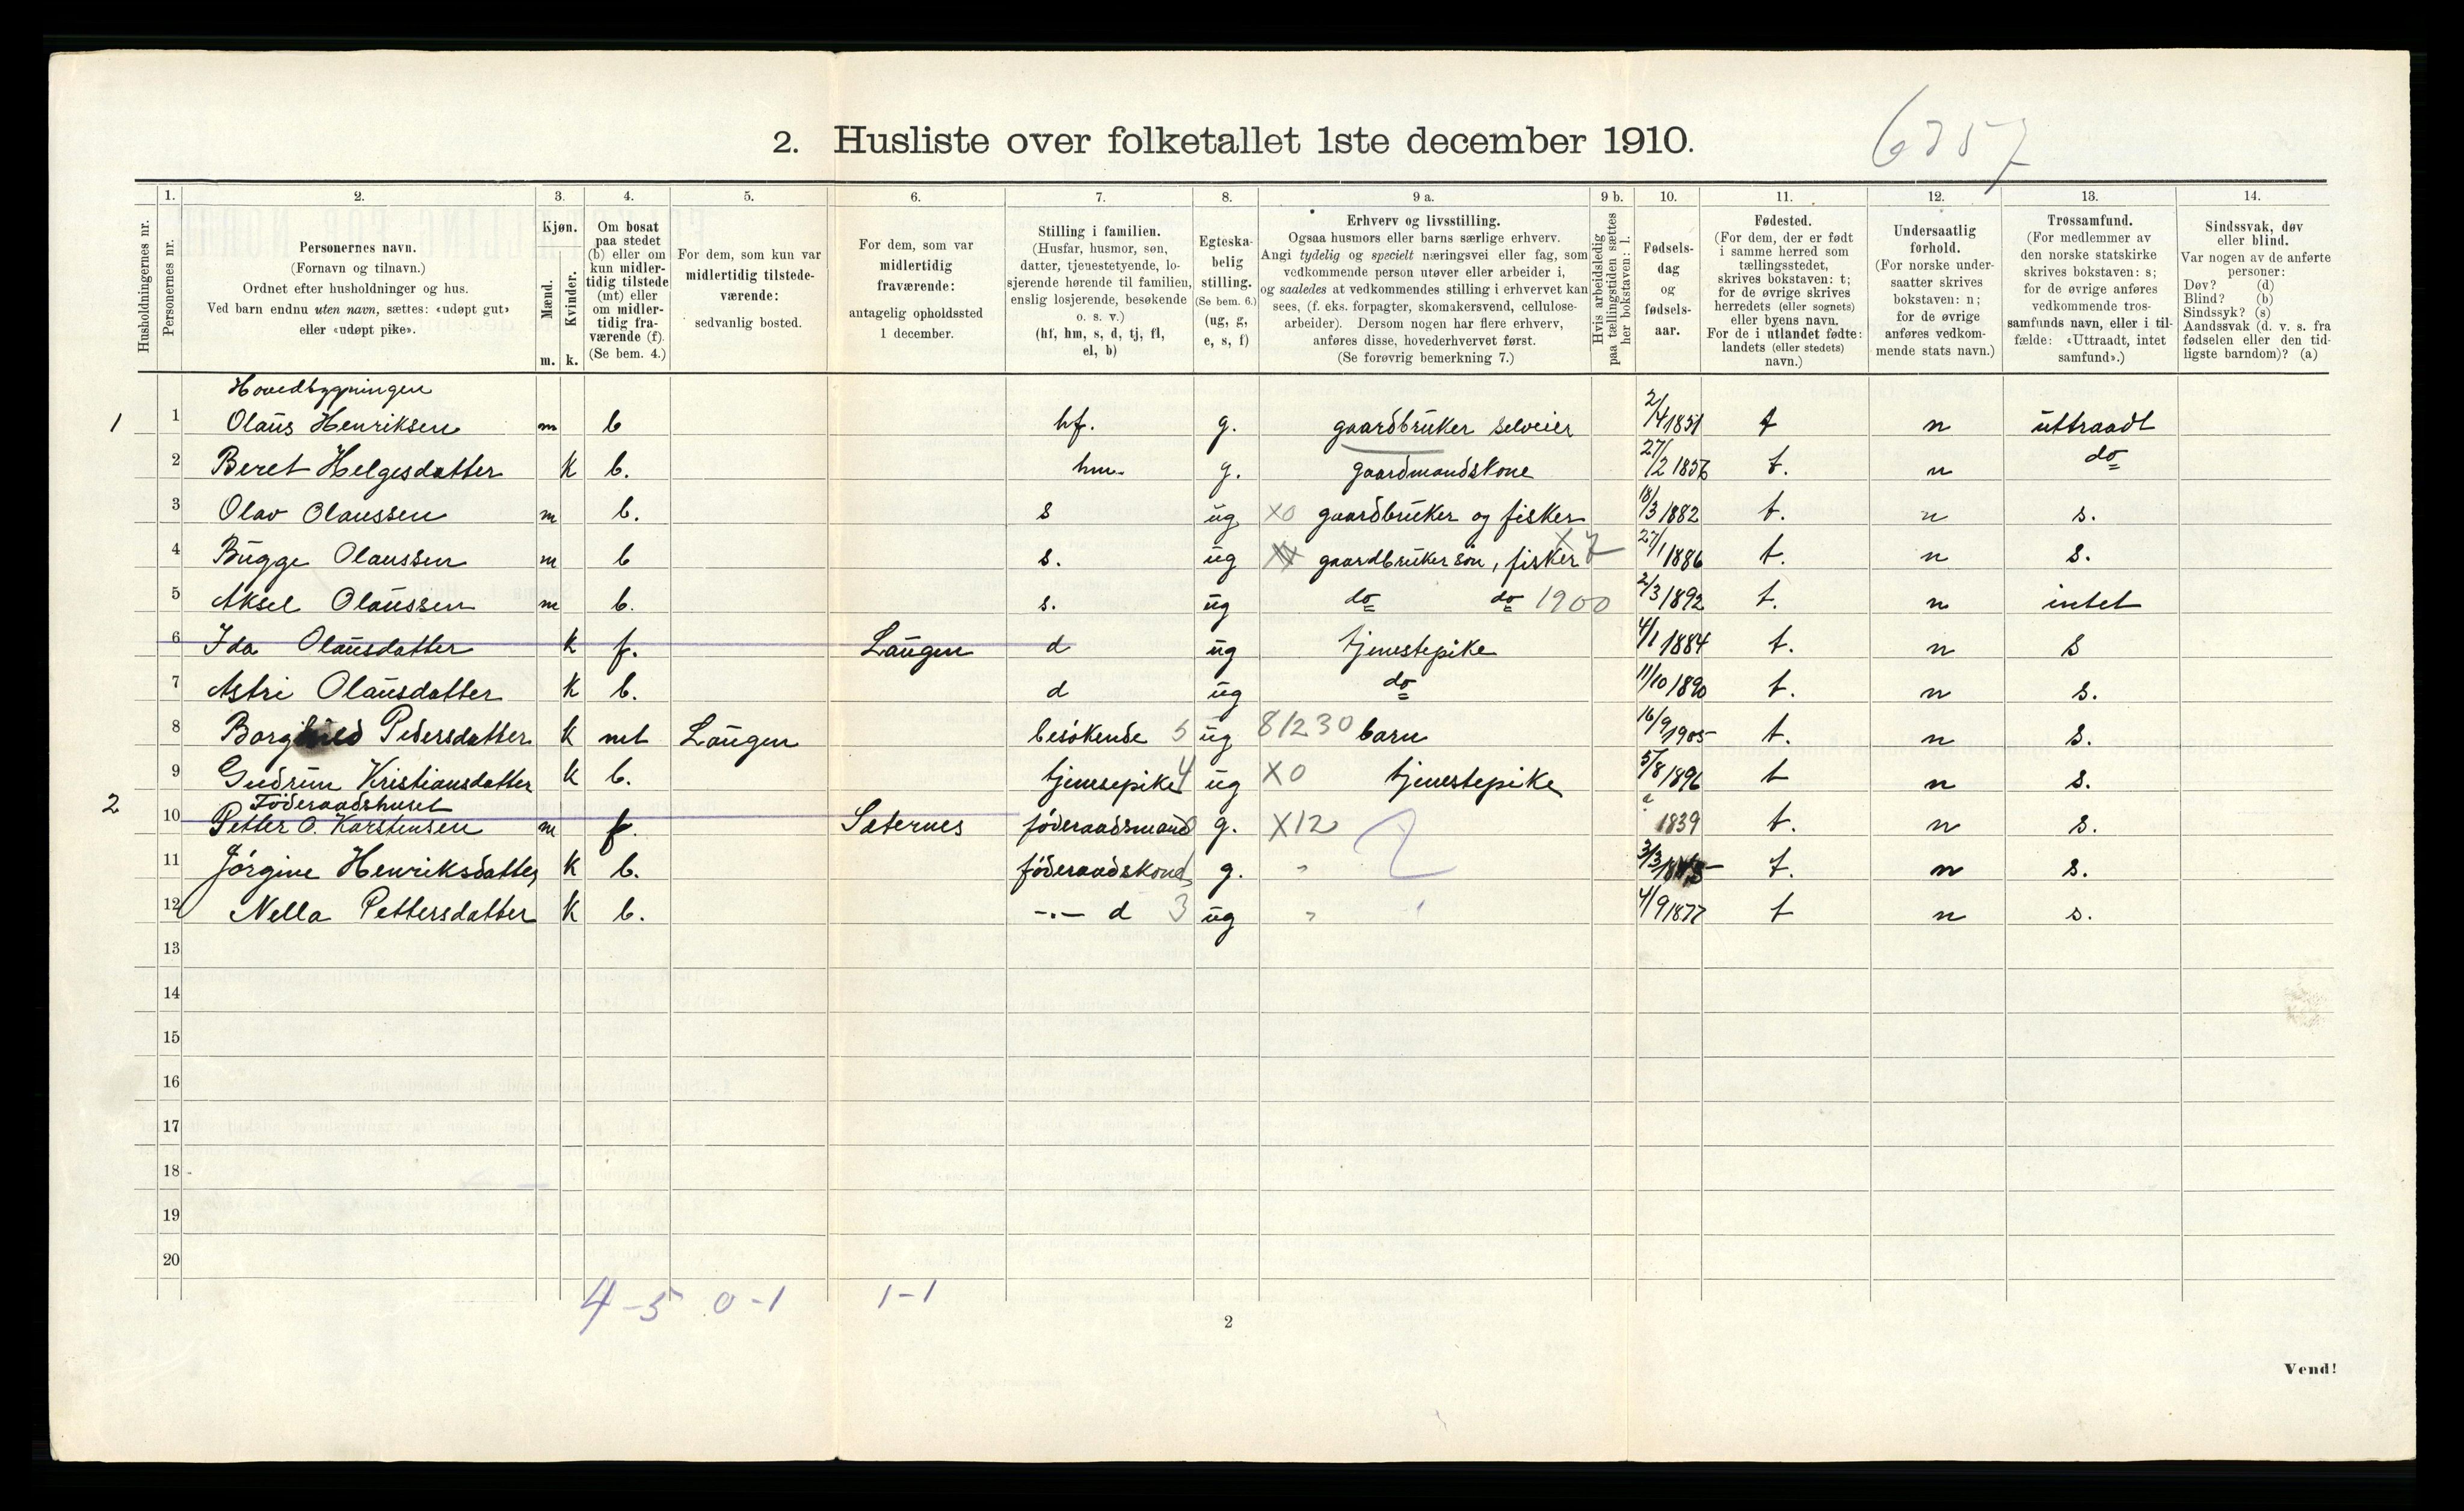 2. Husliste over folketallet 1ste december 1910.
6357
1. 2. 3. 4. 5. 6. 7. 8. 9 a. 9 b. 10. 11. 12. 13. 14.
Husholdningernes nr.
Personernes nr.
Personernes navn.
(Fornavn og tilnavn.)
Ordnet efter husholdninger og hus.
Ved barn endnu uten navn, sættes: «udøpt gut»
eller «udøpt pike».
Kjøn.
Mænd.
Kvinder.
m. k.
Om bosat
paa stedet
(b) eller om
kun midler-
tidig tilstede
(mt) eller
om midler-
tidig fra-
værende (f).
(Se bem. 4.)
For dem, som kun var
midlertidig tilstede-
værende:
sedvanlig bosted.
For dem, som var
midlertidig
fraværende:
antagelig opholdssted
1 december.
Stilling i familien.
(Husfar, husmor, søn,
datter, tjenestetyende, lo-
sjerende hørende til familien,
enslig losjerende, besøkende
o. s. v.)
(hf, hm, s, d, tj, fl,
el, b)
Egteska-
belig
stilling.
(Se bem. 6.)
(ug, g,
e, s, f)
Erhverv og livsstilling.
Ogsaa husmors eller barns særlige erhverv.
Angi tydelig og specielt næringsvei eller fag, som
vedkommende person utøver eller arbeider i,
og saaledes at vedkommendes stilling i erhvervet kan
sees, (f. eks. forpagter, skomakersvend, cellulose-
arbeider). Dersom nogen har flere erhverv,
anføres disse, hovederhvervet først.
(Se forøvrig bemerkning 7.)
Hvis arbeidsledig
paa tællingstiden sættes
her bokstaven: l.
Fødsels-
dag
og
fødsels-
aar.
Fødested.
(For dem, der er født
i samme herred som
tællingsstedet,
skrives bokstaven: t;
for de øvrige skrives
herredets (eller sognets)
eller byens navn.
For de i utlandet fødte:
landets (eller stedets)
navn.)
Undersaatlig
forhold.
(For norske under-
saatter skrives
bokstaven: n;
for de øvrige
anføres vedkom-
mende stats navn.)
Trossamfund.
(For medlemmer av
den norske statskirke
skrives bokstaven: s;
for de øvrige anføres
vedkommende tros-
samfunds navn, eller i til-
fælde: «Uttraadt, intet
samfund».)
Sindssvak, døv
eller blind.
Var nogen av de anførte
personer:
Døv? (d)
Blind? (b)
Sindssyk? (s)
Aandssvak (d. v. s. fra
fødselen eller den tid-
ligste barndom)? (a)
Hovedbygningen
1 1 Olaus Henriksen m b hf. g. gaardbruker selveier 2/4 1851 t n uttraadt
2 Beret Helgesdatter k b. hm. g. gaardmandskone 27/2 1856 t. n do
3 Olav Olaussen m b. s ug X0 gaardbruker og fisker 18/3 1882 t. n s.
4 Bugge Olaussen m b s. ug gaardbrukersøn, fisker X7 27/1 1886 t. n s.
5 Aksel Olaussen m b. s. ug do do 1900 2/3 1892 t. n intet
6 Ida Olausdatter k f. Laugen d ug tjenestepike 4/1 1884 t. n s
7 Astri Olausdatter k b. d ug do 11/10 1890 t. n s.
8 Borghild Pedersdatter k mt Laugen besøkende 5 ug 81230 barn 16/9 1905 t. n s.
9 Gudrun Kristiansdatter k b. tjensepike 4 ug X0 tjenestepike 5/8 1896 t n s.
2 Føderaadshuset
10 Petter O. Karstensen m f. Sæternes føderaadsmand g. X12 1839 t. n s.
11 Jørgine Henriksdatter k b. føderaadskone g. " 3/3 t. n s.
12 Nella Pettersdatter k b. -.- d 3 ug " 4/9 1877 t n s.
13
14
15
16
17
18
19
20
4-5 0-1 1-1
2
Vend!